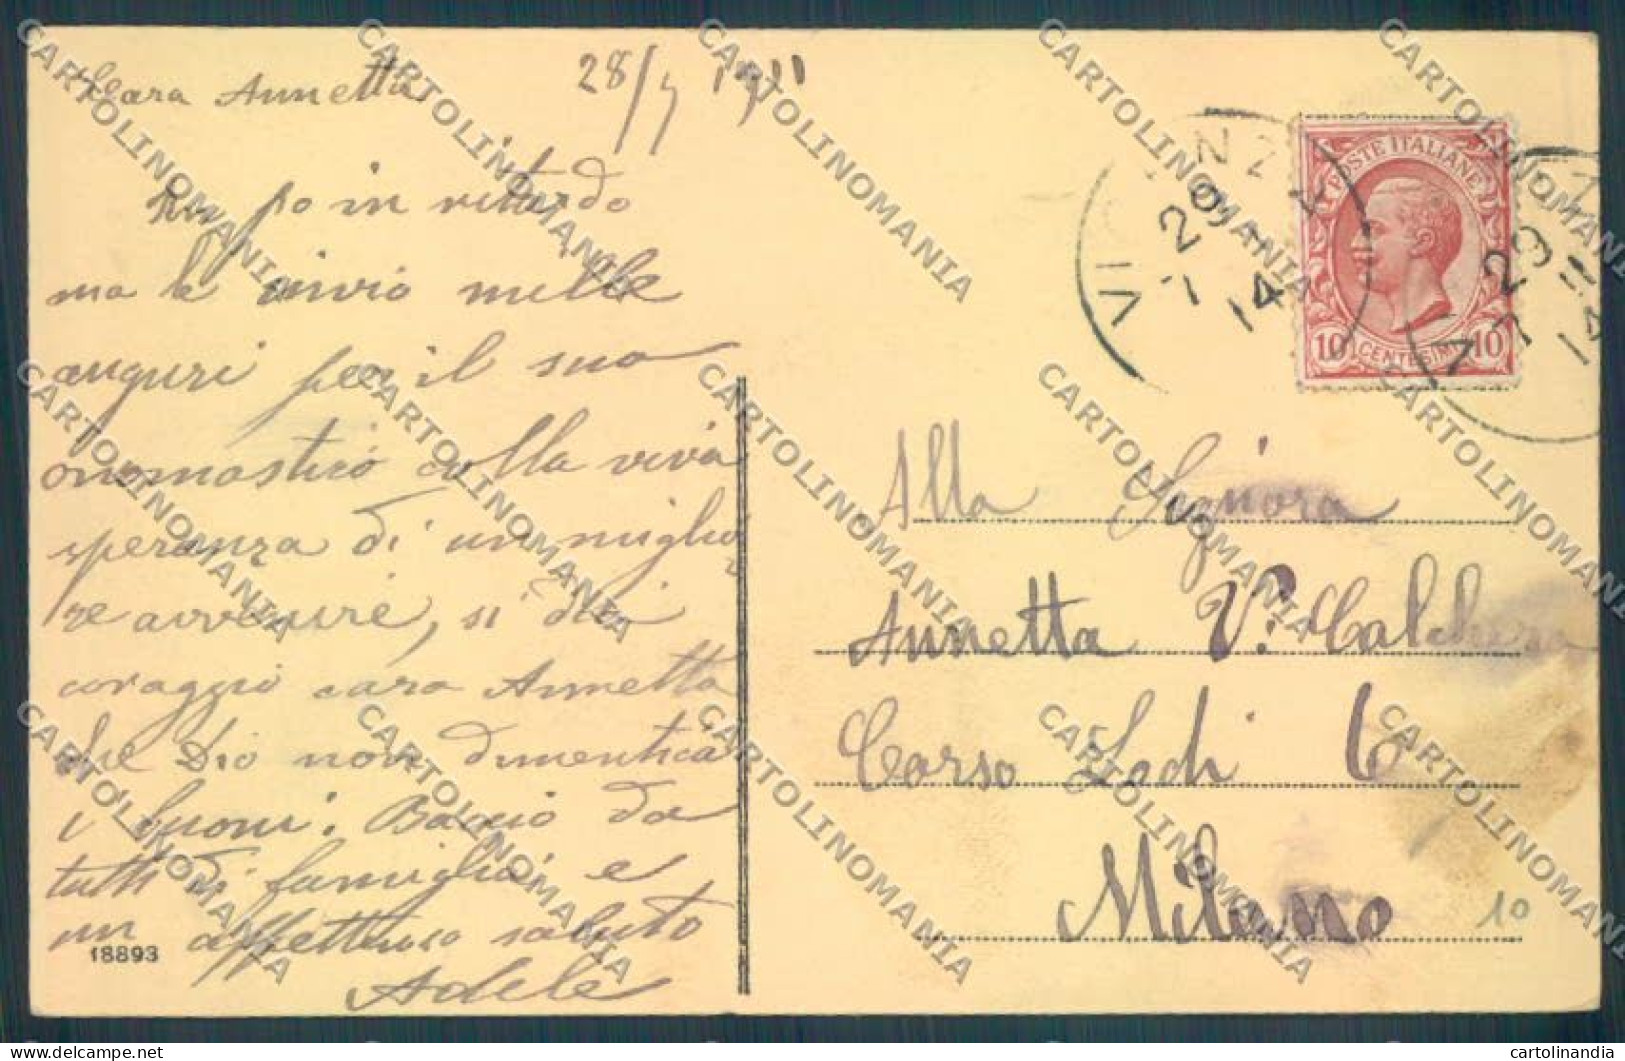 Cara Annetta
28/7 1911
Un po in ritardo
ma le invio mille
auguri per il suo
onomastico colla viva
speranza di un miglio
re avvenire, si dia
coraggio cara Annetta
che Dio non dimentica
i buoni. Baccio da
tutti di famiglia e
un affettuoso saluto
Adele
18893
POSTE ITALIANE
10 CENTESIMI 10
29
14
Alla Signora
Annetta V. Calchera
Corso Lodi 6
Milano
10
CARTOLINOMANIA
www.delcampe.net
cartolinandia